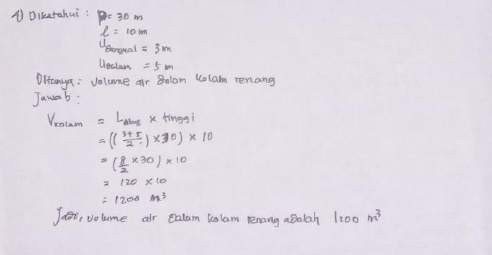 1) Diketahui : P = 30 m
l = 10 m
U dangkal = 3 m
U dalam = 5 m
Ditanya : Volume air dalam kolam renang
Jawab :
V kolam = L alas × tinggi
= (( 3+5 / 2 ) × 30 ) × 10
= ( 8/2 × 30 ) × 10
= 120 × 10
= 1200 m³
Jadi, volume air dalam kolam renang adalah 1200 m³